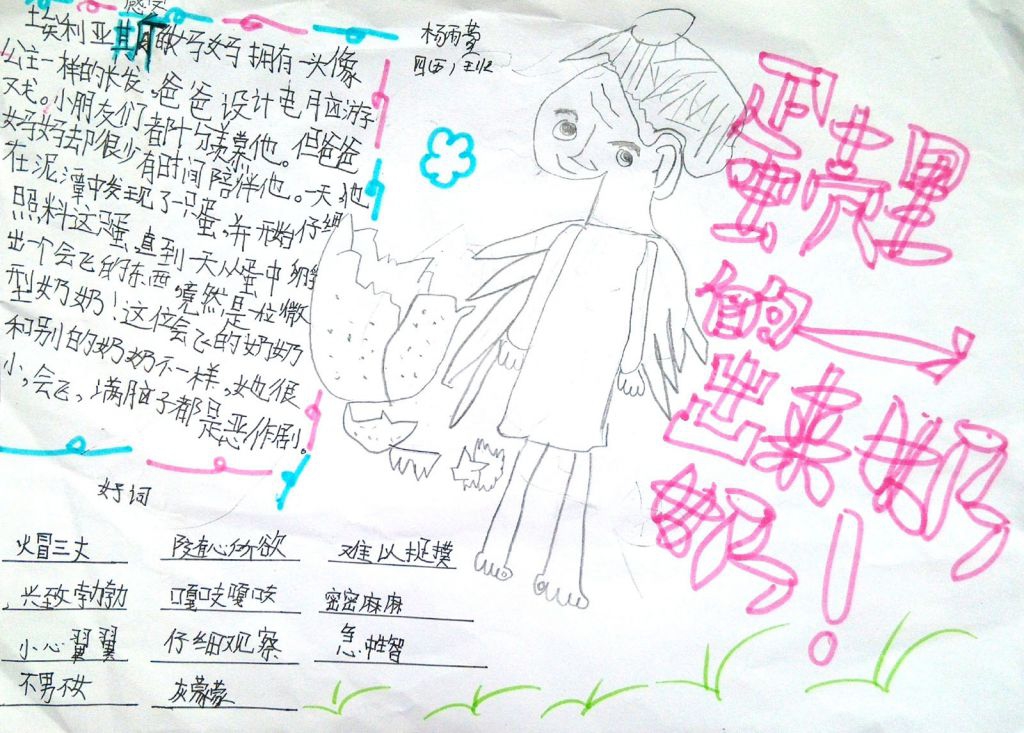 感受
埃利亚其斯敢妈妈拥有一头像
公主一样的长发,爸爸设计电脑游
戏。小朋友们都十分羡慕他。但爸爸
妈妈却很少有时间陪伴他。一天,他
在泥潭中发现了一只蛋,并开始仔细
照料这只蛋,直到一天从蛋中
出一个会飞的东西,竟然是一位微
型奶奶!这位会飞的奶奶
和别的奶奶不一样,她很
小,会飞,满脑子都是恶作剧。
杨雨蒙
四五,
蛋壳里
的——
出来奶
奶!
好词
火冒三丈 随心所欲 难以捉摸
兴致勃勃 嘎吱嘎吱 密密麻麻
小心翼翼 仔细观察 急性智
不男不女 灰蒙蒙